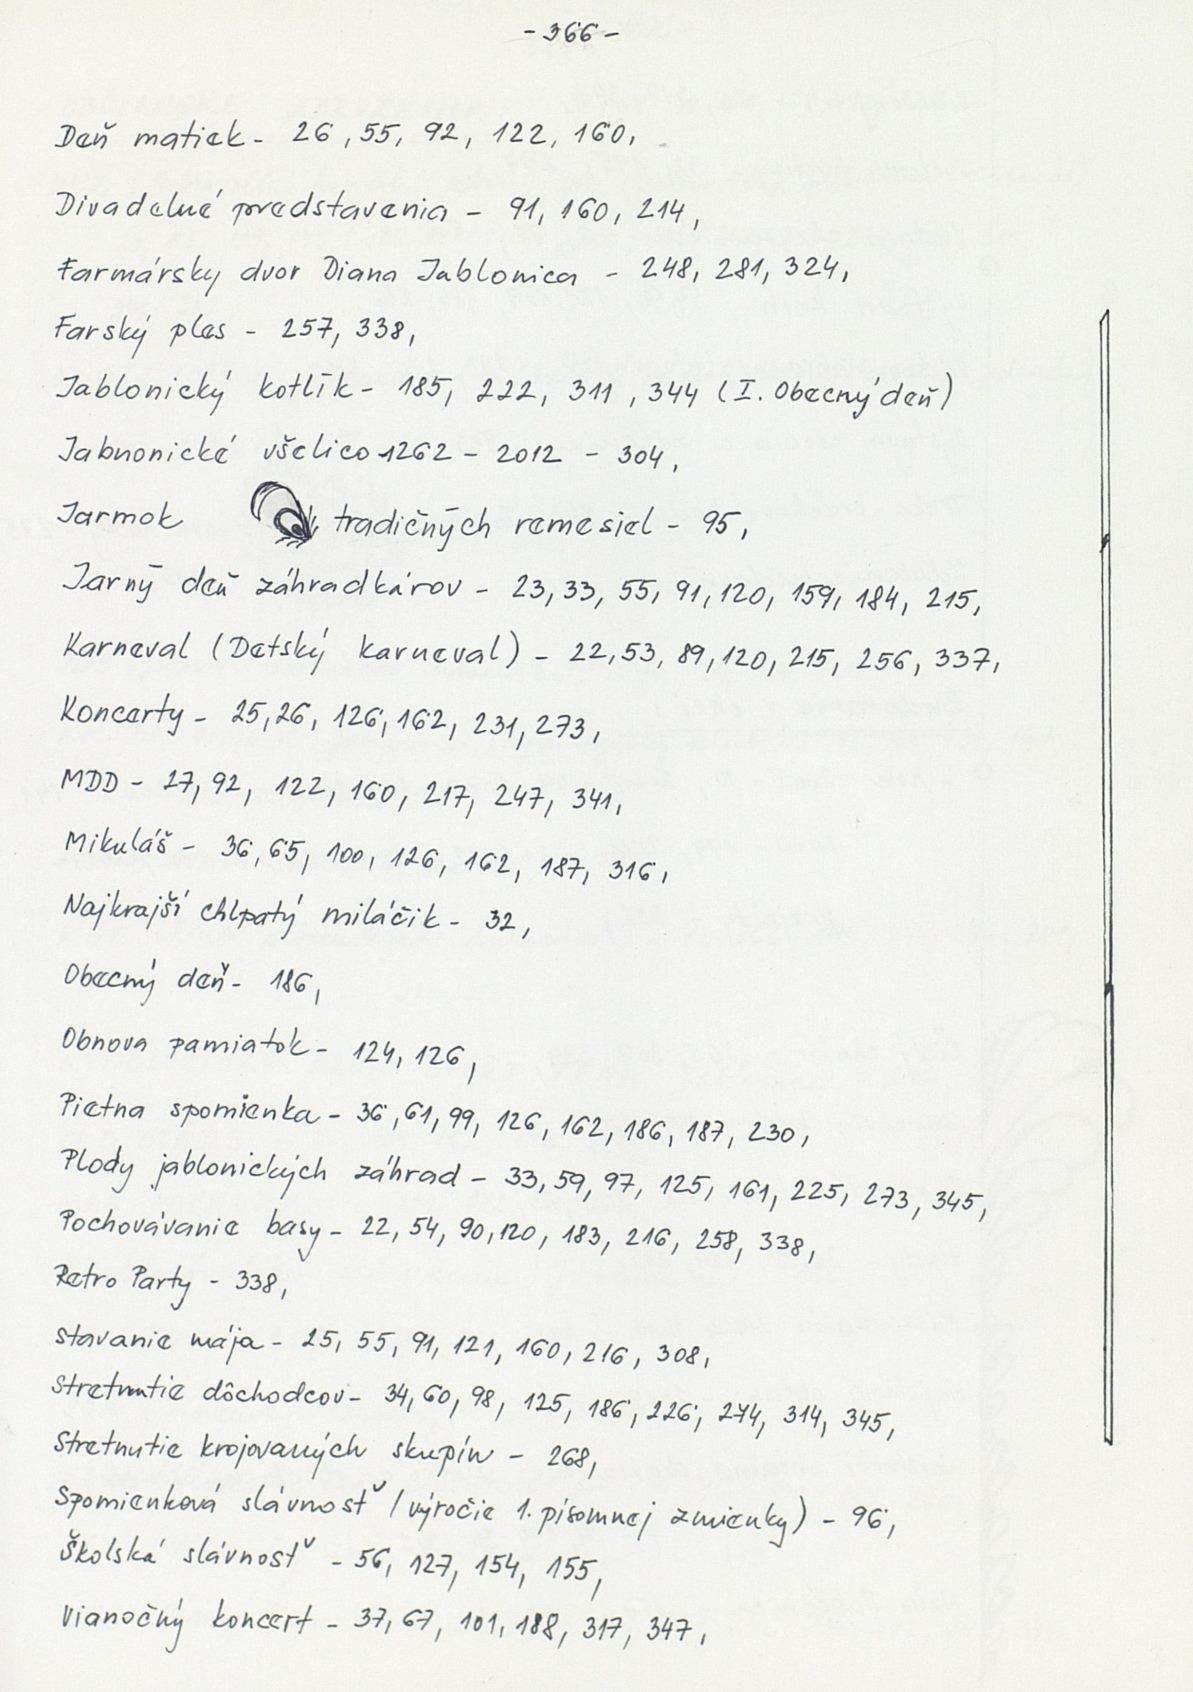 - 366 -
Deň matiek - 26, 55, 92, 122, 160,
Divadelné predstavenia - 91, 160, 214,
Farmársky dvor Diana Jablonica - 248, 281, 324,
Farský ples - 257, 338,
Jablonický kotlík - 185, 222, 311, 344 (I. Obecný deň)
Jabnonické všelico 1262 - 2012 - 304,
Jarmok tradičných remesiel - 95,
Jarný deň záhradkárov - 23, 33, 55, 91, 120, 159, 184, 215,
Karneval (Detský karneval) - 22, 53, 89, 120, 215, 256, 337,
Koncerty - 25, 26, 126, 162, 231, 273,
MDD - 27, 92, 122, 160, 217, 247, 341,
Mikuláš - 36, 65, 100, 126, 162, 187, 316,
Najkrajší chlpatý miláčik - 32,
Obecný deň - 186,
Obnova pamiatok - 124, 126,
Pietna spomienka - 36, 61, 99, 126, 162, 186, 187, 230,
Plody jablonických záhrad - 33, 59, 97, 125, 161, 225, 273, 345,
Pochovávanie basy - 22, 54, 90, 120, 183, 216, 258, 338,
Retro Party - 338,
Stavanie mája - 25, 55, 91, 121, 160, 216, 308,
Stretnutie dôchodcov - 34, 60, 98, 125, 186, 226, 274, 314, 345,
Stretnutie krojovaných skupín - 268,
Spomienková slávnosť (výročie 1. písomnej zmienky) - 96,
Školská slávnosť - 56, 127, 154, 155,
Vianočný koncert - 37, 67, 101, 188, 317, 347,